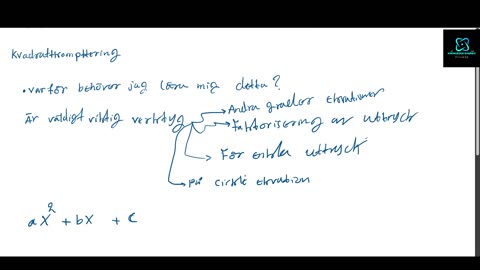 Kvadratkomplettering
• varför behöver jag lära mig detta?
Är väldigt viktig verktyg
Andra grader ekvationer
Faktorisering av uttryck
För enkla uttryck
på cirkle ekvation
ax² + bx + c